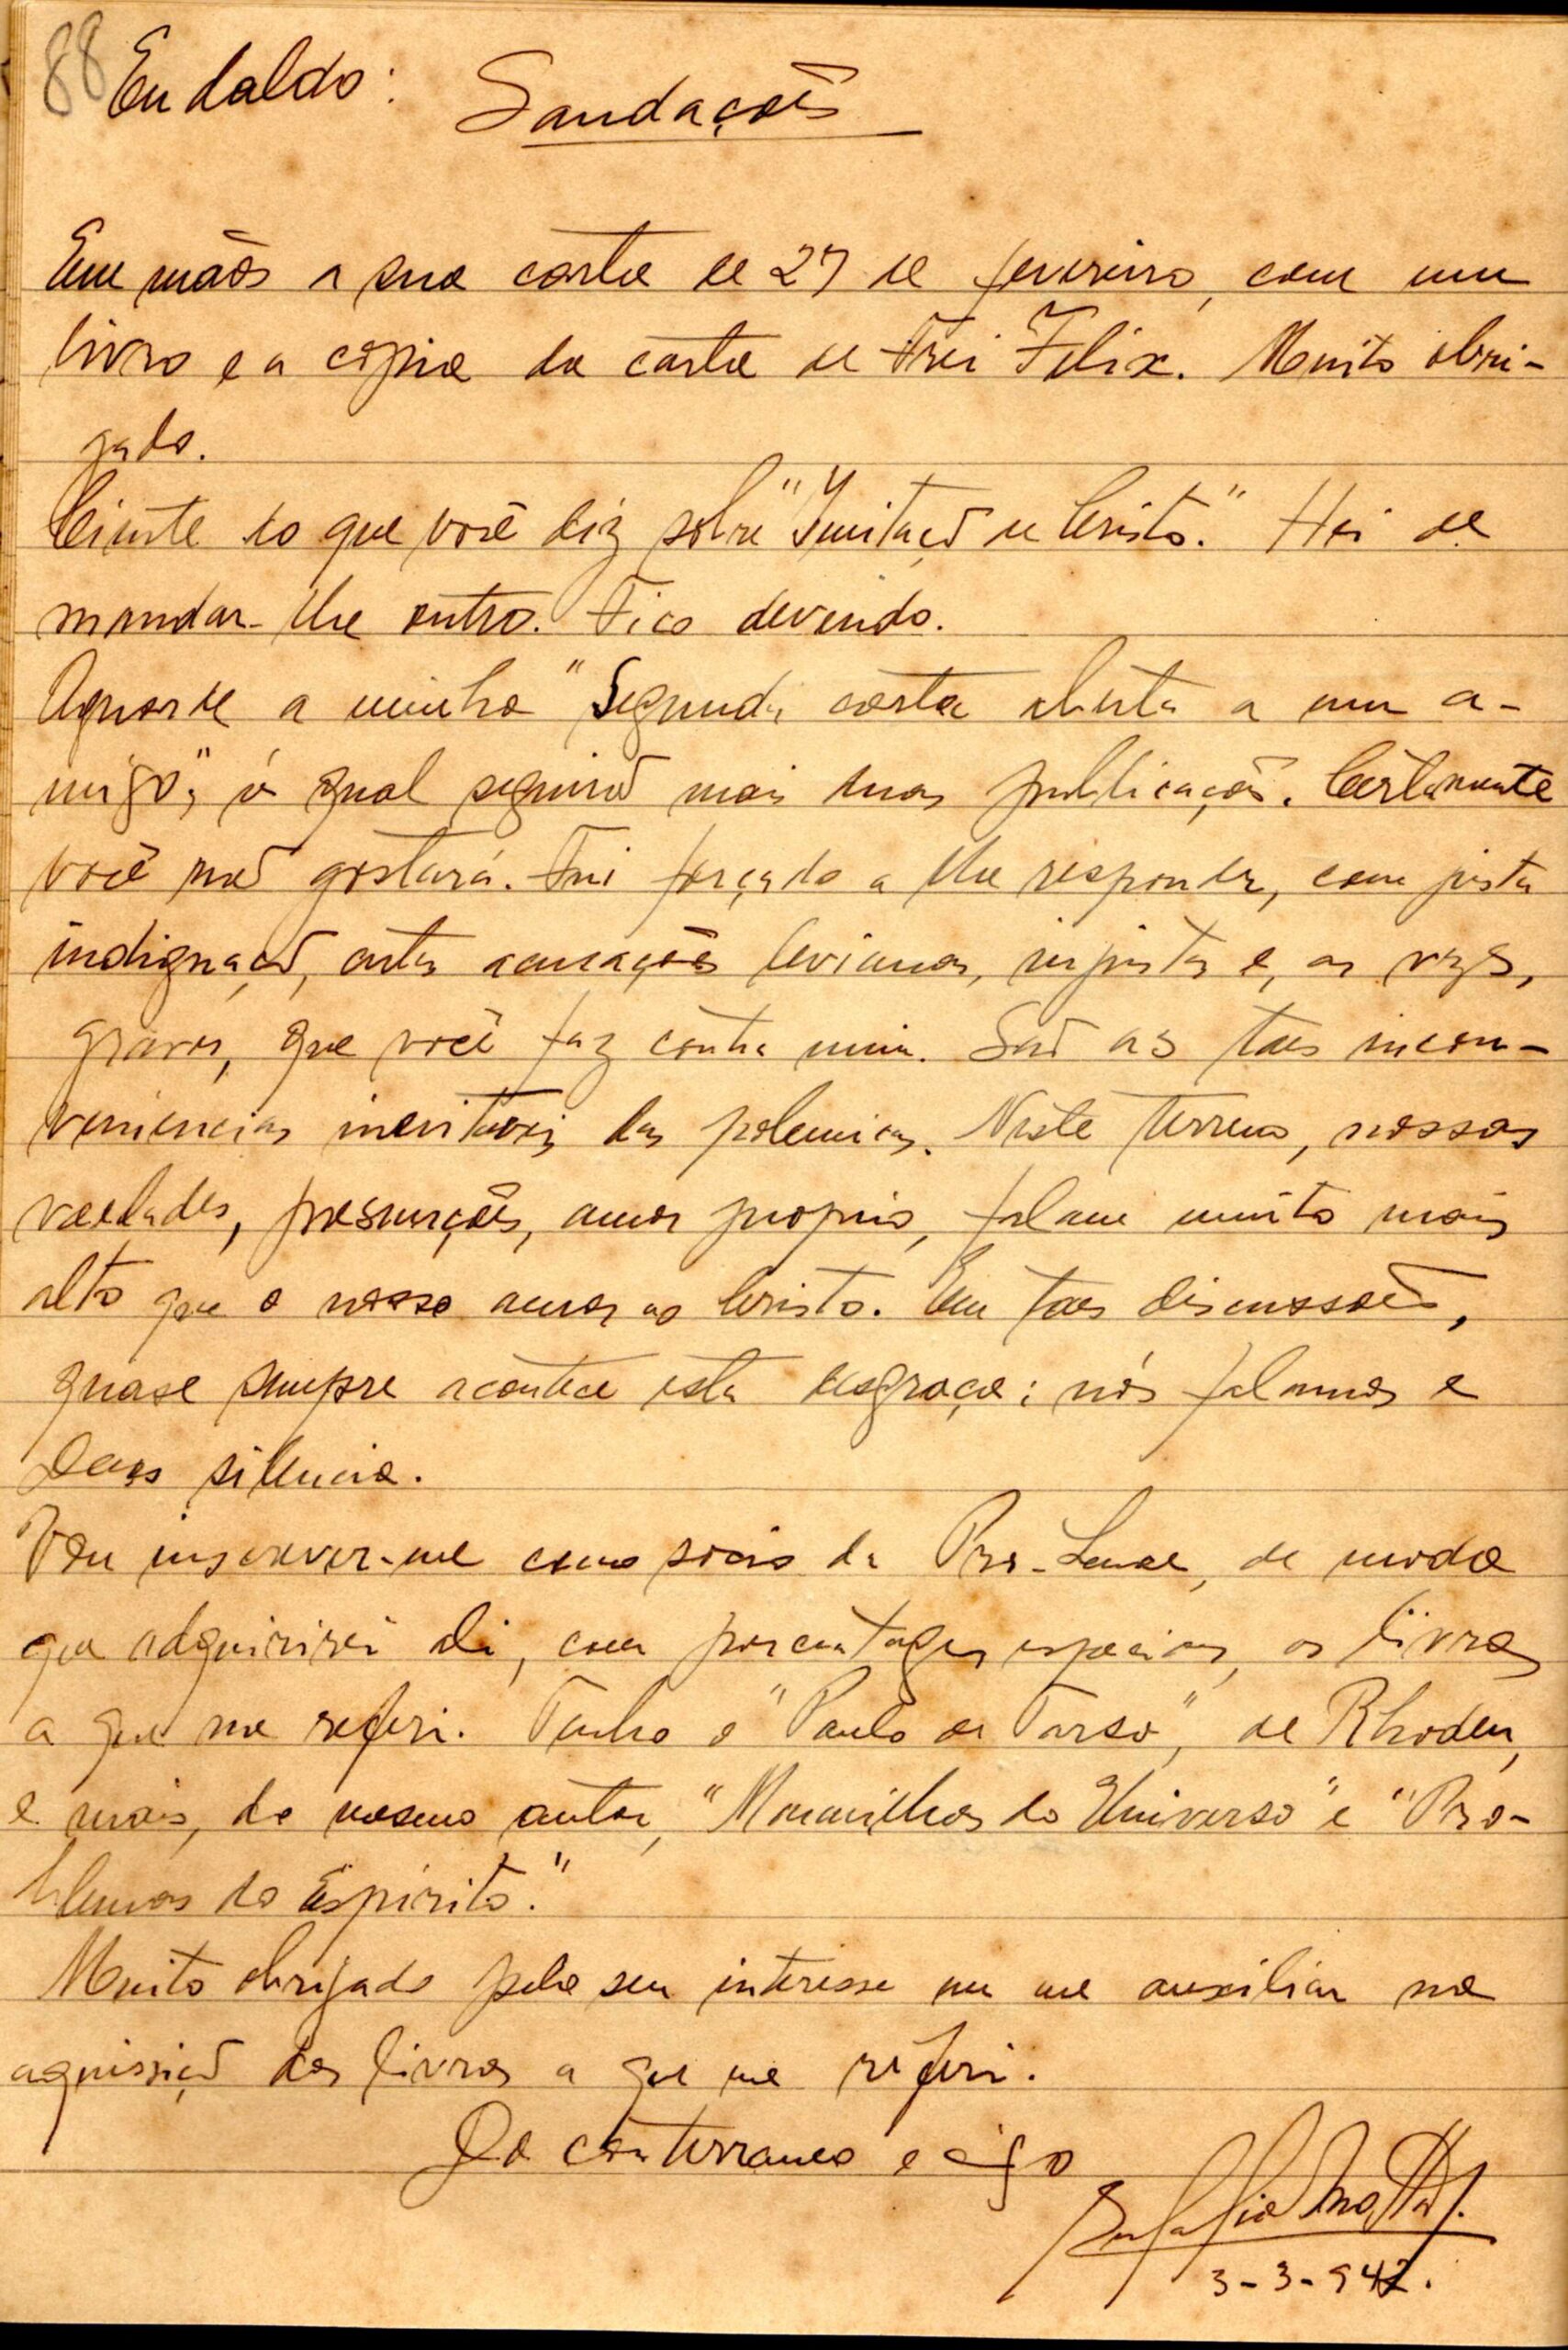 88 Eudaldo: Saudações
Em mãos a sua carta de 27 de fevereiro, com um
livro e a cópia da carta de Frei Felix. Muito obri-
gado.
Ciente do que você diz sobre "Imitação de Cristo." Hei de
mandar-lhe outro. Fico devendo.
Aguarde a minha "Segunda carta aberta a um a-
migo", á qual seguirão mais duas publicações. Certamente
você não gostará. Fui forçado a lhe responder, com justa
indignação, certas acusações levianas, injustas e, as vezes,
graves, que você faz contra mim. São as taes incon-
veniencias inevitaveis das polemicas. Neste terreno, nossas
vaedades, presunções, amor proprio, falam muito mais
alto que o nosso amor ao Cristo. Em taes discussões,
quase sempre acontece esta desgraça: nós falamos e
Deus silencia.
Vou inscrever-me como socio da Pro-Luce, de modo
que adquirirei ali, com porcentagens especiaes, os livros
a que me referi. Tenho o "Paulo de Tarso", de Rhoden,
e mais, do mesmo autor, "Maravilhas do Universo" e "Pro-
blemas do Espirito."
Muito obrigado pelo seu interesse em me auxiliar na
aquisição dos livros a que me referi.
Do conterraneo e
3-3-942.